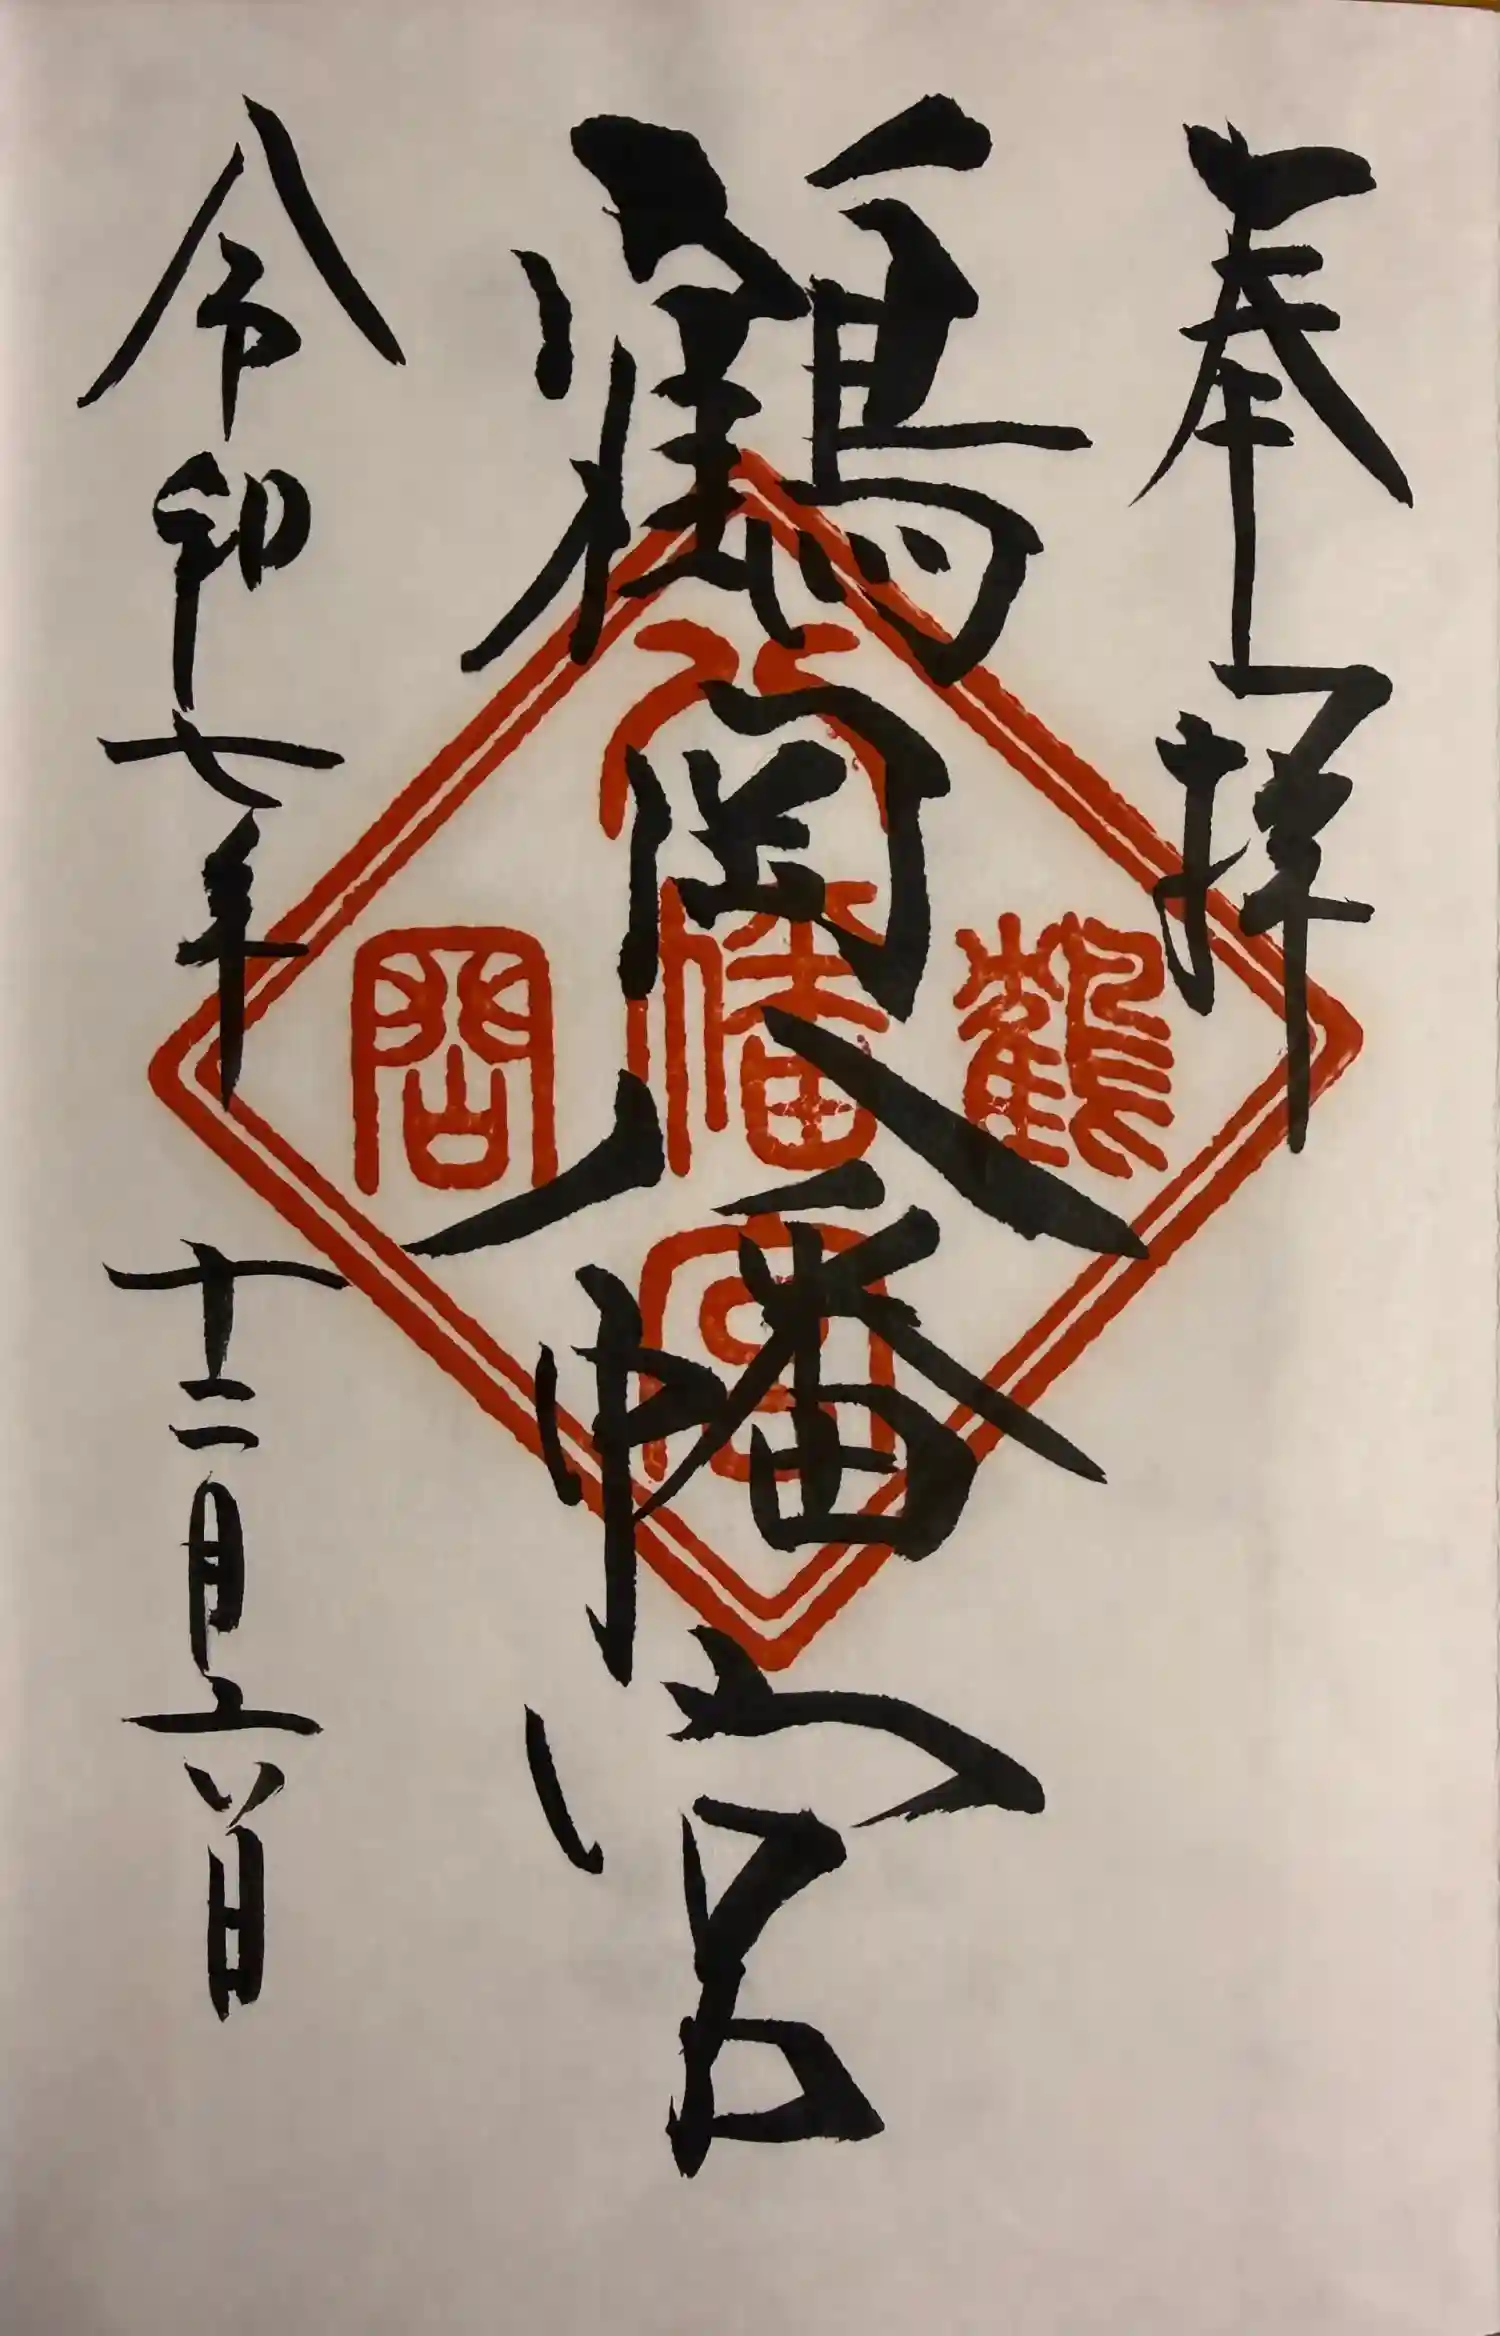 奉拝
鶴岡八幡宮
鶴岡八幡宮
令和七年十二月六日